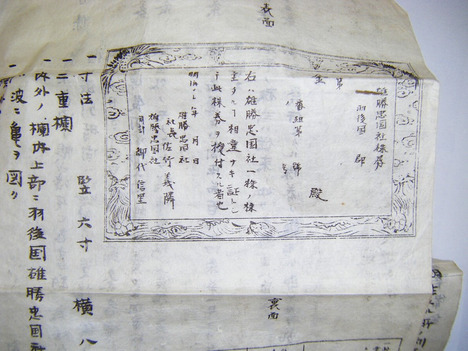 表面
雄勝忠国社株券
羽後国 郡
第 番組第 号
金
殿
右ハ雄勝忠国社一株ノ株
主タルヿ相違ナキ証トシ
テ此株券ヲ交付スル者也
明治十 年 月 日
雄勝忠国社
社長 佐竹義隣
雄勝忠国社
一寸法 竪六寸 横八
一二重欄
内外ノ欄内上部ニ羽後国雄勝忠国社
波ニ亀ヲ図ク
裏面